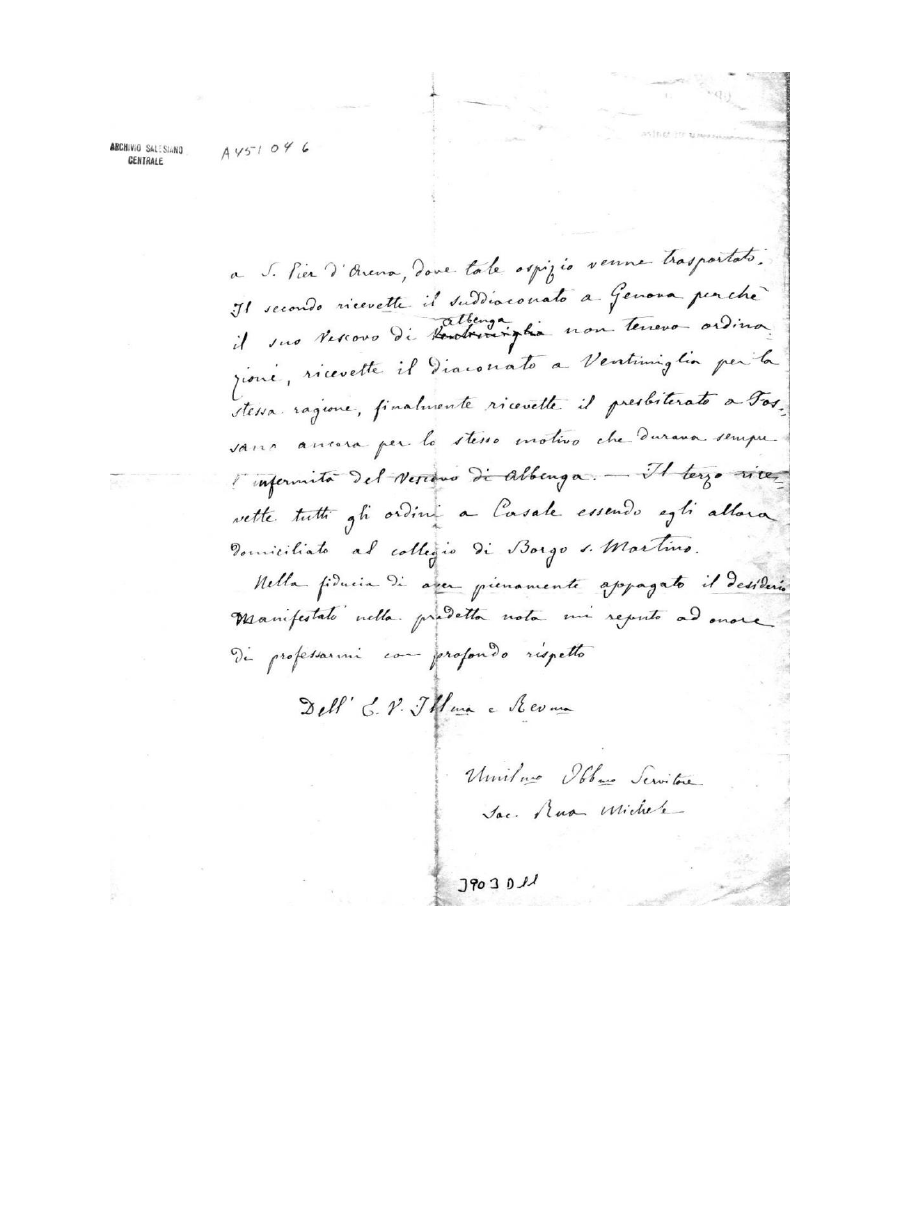 ARCHIVIO SALESIANO
CENTRALE
A451046
a S. Pier d'Arena, dove tale ospizio venne trasportato.
Il secondo ricevette il suddiaconato a Genova perchè
Albenga
il suo Vescovo di Ventimiglia non teneva ordina
zioni, ricevette il diaconato a Ventimiglia per la
stessa ragione, finalmente ricevette il presbiterato a Fos-
sano ancora per lo stesso motivo che durava sempre
l'infermità del Vescovo di Albenga. — Il terzo rice-
vette tutti gli ordini a Casale essendo egli allora
domiciliato al collegio di Borgo s. Martino.
Nella fiducia di aver pienamente appagato il desiderio
manifestato nella predetta nota mi reputo ad onore
di professarmi con profondo rispetto
Dell' E. V. Illma e Revma
Umilmo Obbmo Servitore
Sac. Rua Michele
3903 D11